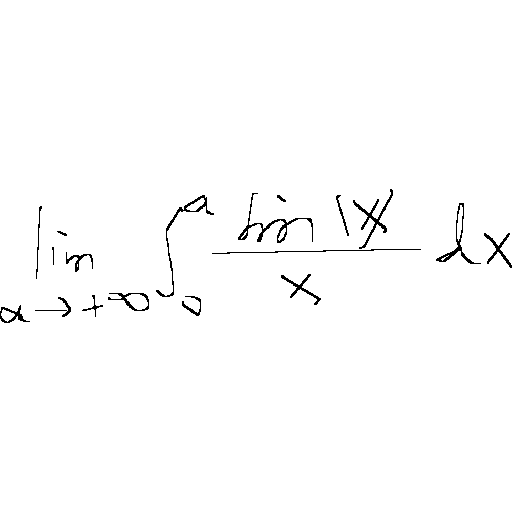 \lim_{a \to +\infty} \int_0^a \frac{\sin(x)}{x} dx